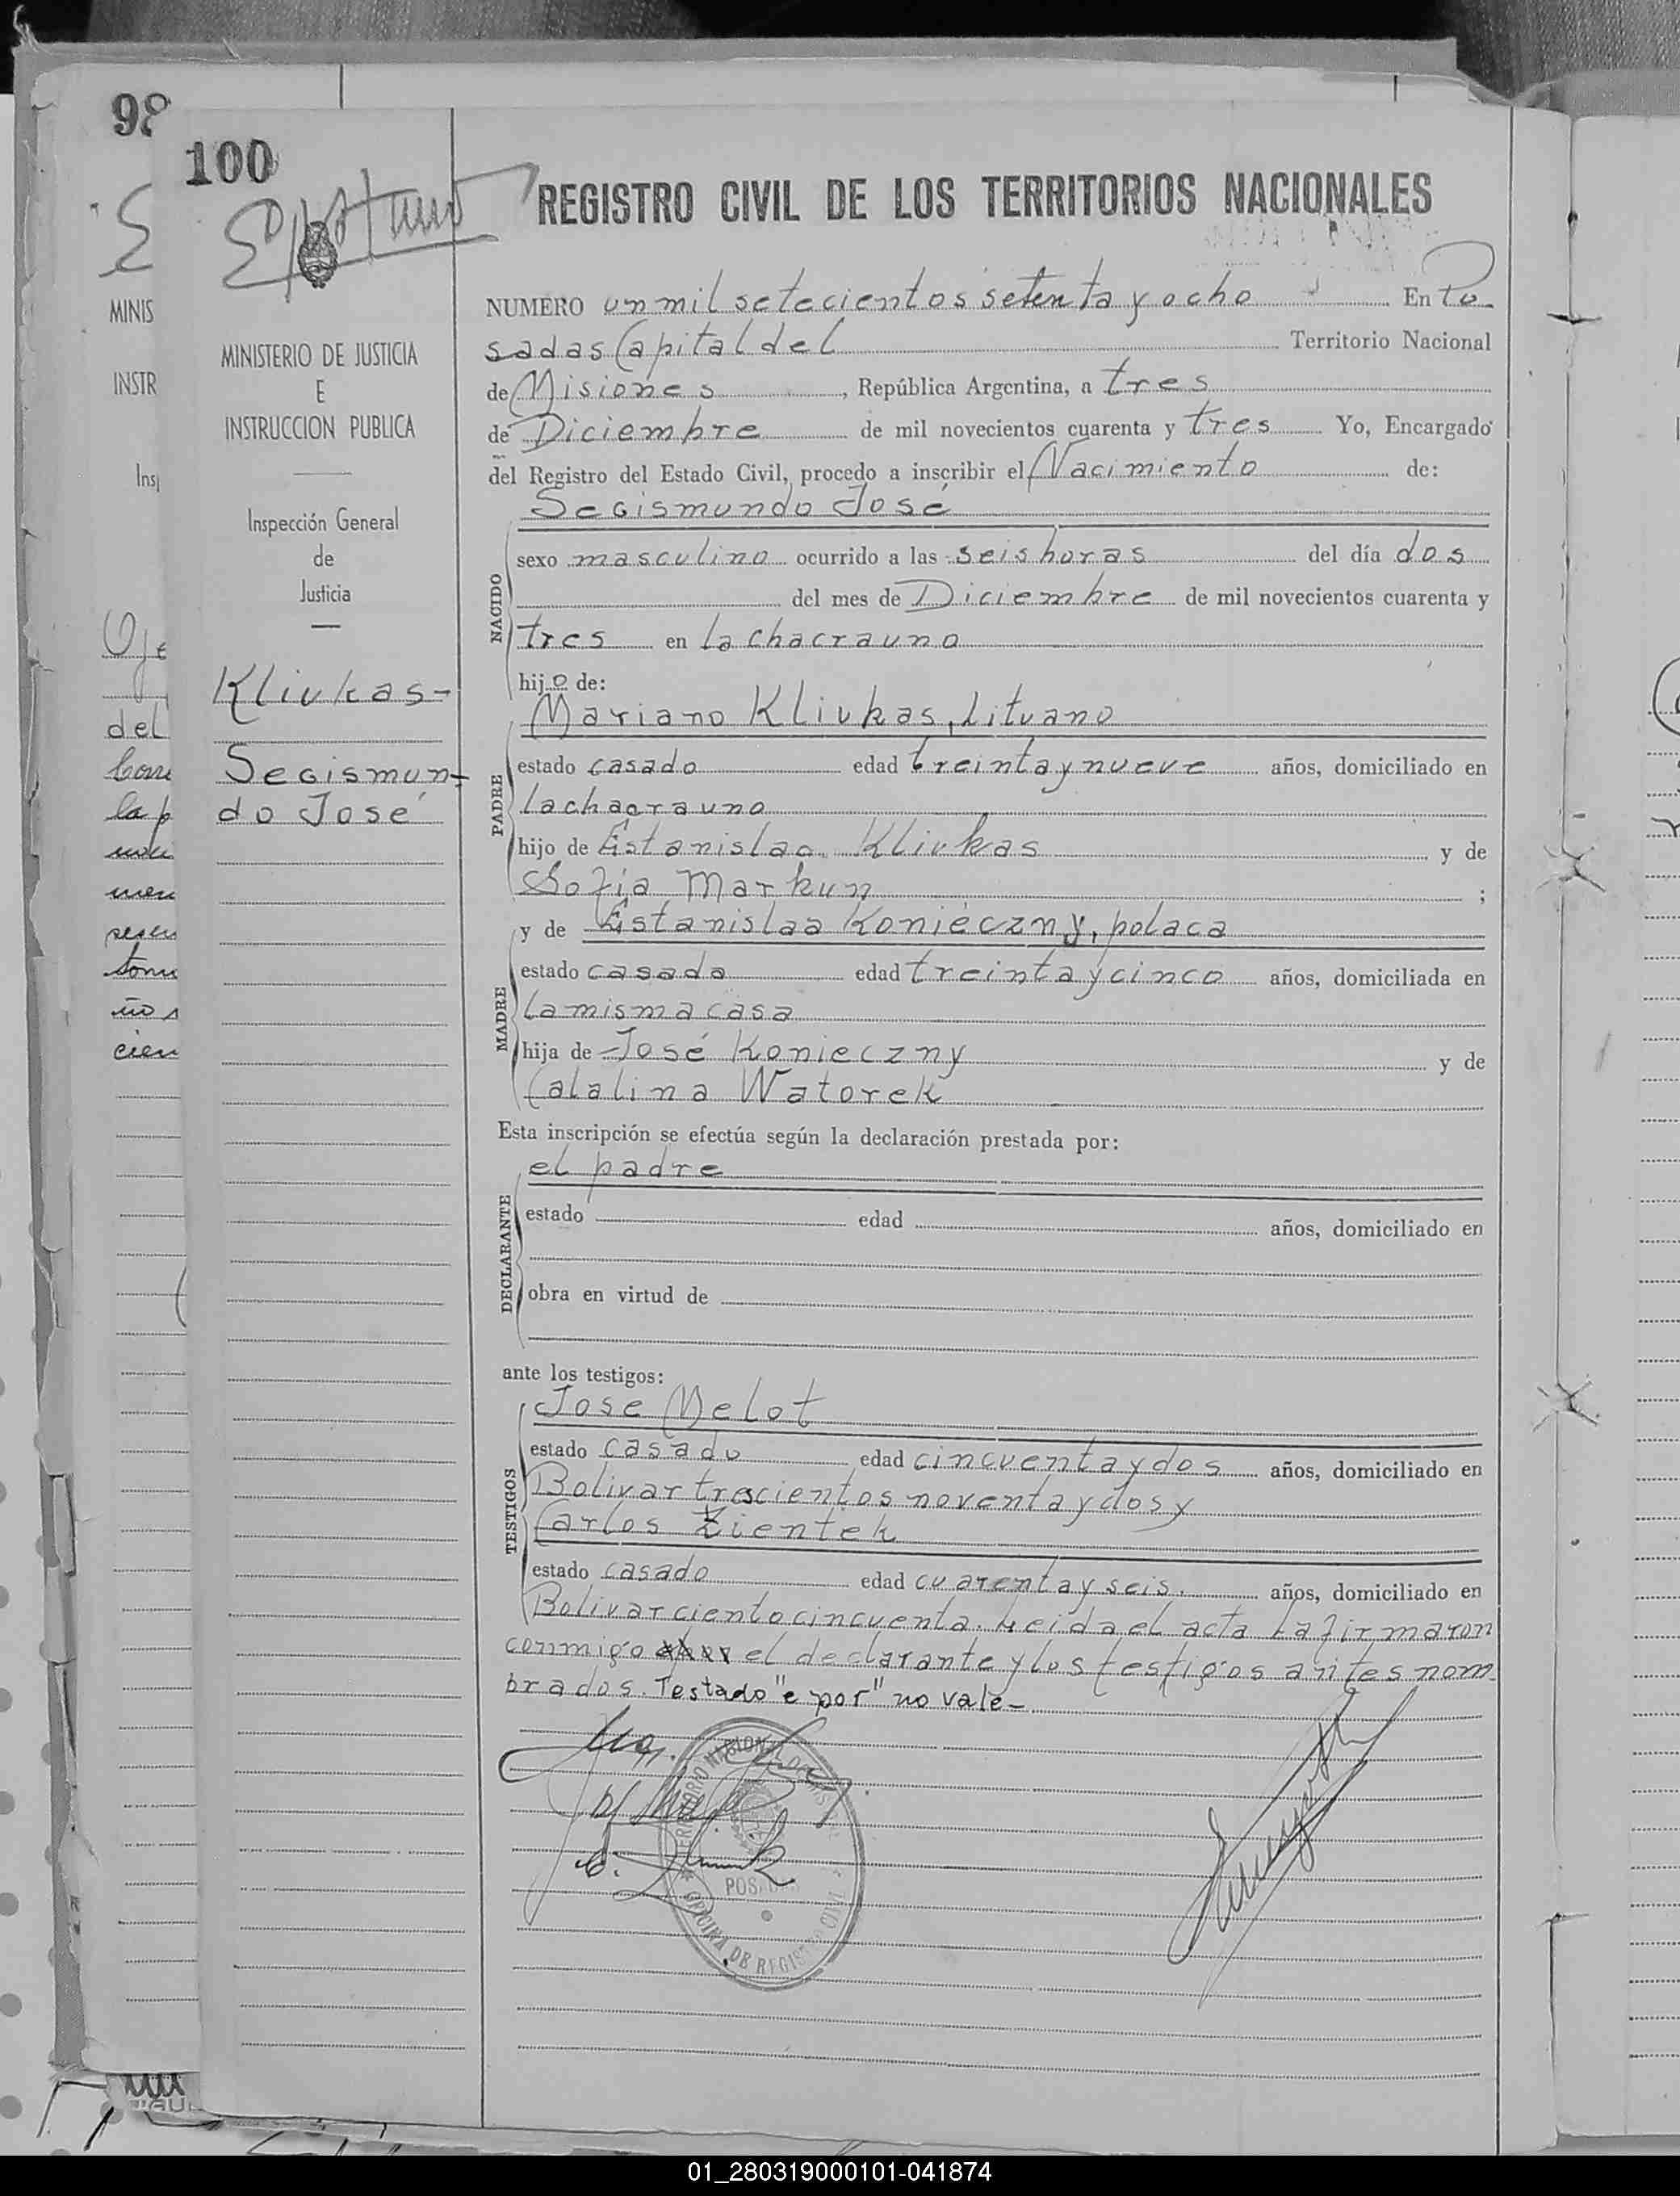 98
100
REGISTRO CIVIL DE LOS TERRITORIOS NACIONALES
MINIS
INSTR
Insp
Oje
del
la p
MINISTERIO DE JUSTICIA
E
INSTRUCCION PUBLICA
Inspección General
de
Justicia
Kliukas-
Segismun-
do José
NUMERO un mil setecientos setenta y ocho En Po-
sadas Capital del Territorio Nacional
de Misiones, República Argentina, a tres
de Diciembre de mil novecientos cuarenta y tres Yo, Encargado
del Registro del Estado Civil, procedo a inscribir el Nacimiento de:
Segismundo José
NACIDO
sexo masculino ocurrido a las seis horas del día dos
del mes de Diciembre de mil novecientos cuarenta y
tres en la chacra uno
hijo de:
Mariano Kliukas, Lituano
PADRE
estado casado edad treinta y nueve años, domiciliado en
la chacra uno
hijo de Estanislao Kliukas y de
Sofia Markun ;
y de Estanislaa Konieczny, polaca
MADRE
estado casada edad treinta y cinco años, domiciliada en
la misma casa
hija de José Konieczny y de
Catalina Watorek
Esta inscripción se efectúa según la declaración prestada por:
el padre
DECLARANTE
estado edad años, domiciliado en
obra en virtud de
ante los testigos:
Jose Melot
TESTIGOS
estado casado edad cincuenta y dos años, domiciliado en
Bolivar trescientos noventa y dos y
Carlos Zientek
estado casado edad cuarenta y seis. años, domiciliado en
Bolivar ciento cincuenta. Leida el acta la firmaron
conmigo el declarante y los testigos antes nom-
brados. Testado "e por" no vale-
POSADAS
OFICINA DE REGISTRO CIVIL
01_280319000101-041874